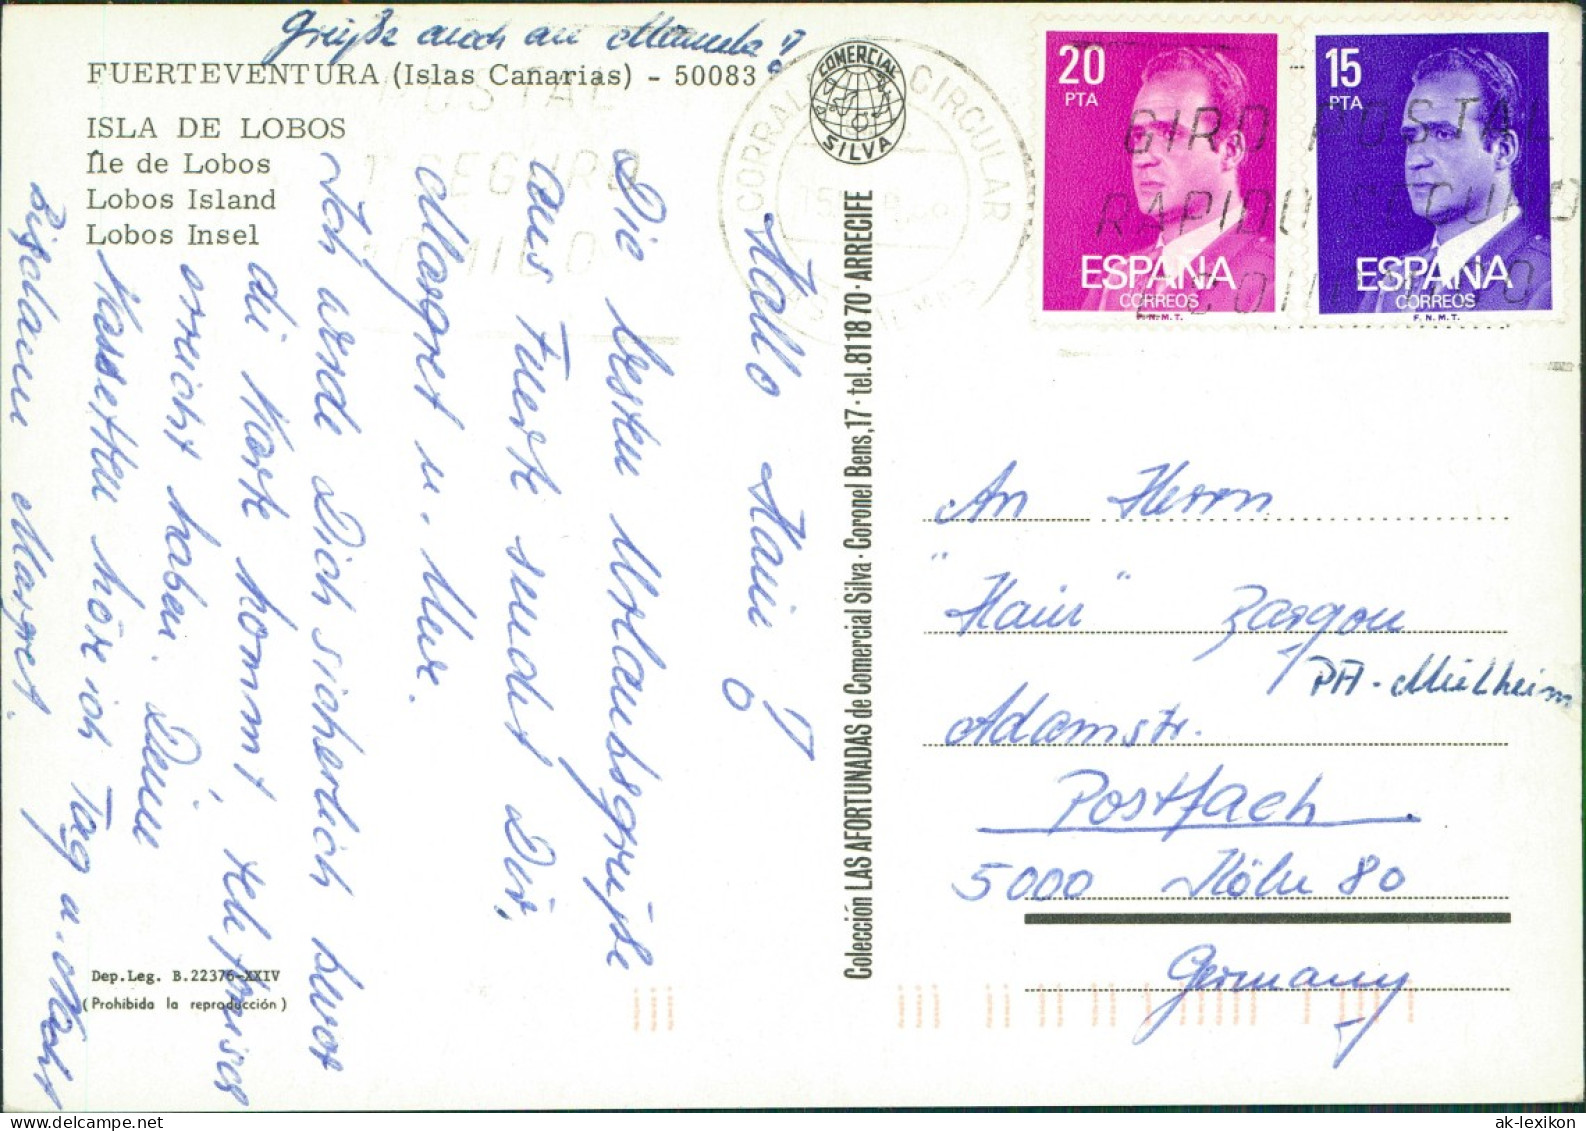 Grüße auch an Manuela!
FUERTEVENTURA (Islas Canarias) - 50083
ISLA DE LOBOS
Île de Lobos
Lobos Island
Lobos Insel
Hallo Hani
Die besten Urlaubsgrüße
aus Fuerte sendet Dir,
Margret u.
Ich werde Dich sicherlich bevor
die Karte kommt telefonisch
erreicht haben. Deine
Kassetten höre ich Tag u. Nacht
Bis dann Margret.
Dep. Leg. B. 22376-XXIV
(Prohibida la reproducción)
COMERCIAL
SILVA
Colección LAS AFORTUNADAS de Comercial Silva · Coronel Bens, 17 · tel. 81 18 70 · ARRECIFE
CORRAL CIRCULAR
20
PTA
ESPAÑA
CORREOS
F.N.M.T.
15
PTA
ESPAÑA
CORREOS
F.N.M.T.
GIRO POSTAL
RAPIDO SEGURO
An Herrn
"Hani" Zargou
PA-Mülheim
Adamstr.
Postfach
5000 Köln 80
Germany
ak-lexikon